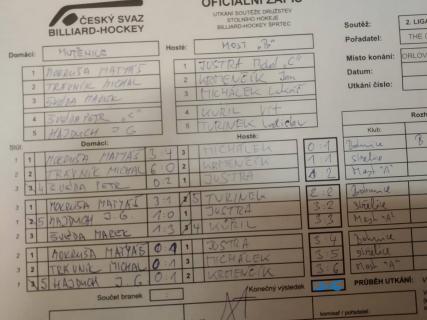 OFICIÁLNÍ ZÁPIS
ČESKÝ SVAZ
BILLIARD-HOCKEY
UTKÁNÍ SOUTĚŽE DRUŽSTEV
STOLNÍHO HOKEJE
BILLIARD-HOCKEY ŠPRTEC
Soutěž: 2. LIGA
Pořadatel: THE
Místo konání: ORLOV
Datum:
Utkání číslo:
Domácí: MUTĚNICE
Hosté: MOST "B"
1 MOKRUŠA MATYÁŠ
2 TRÁVNÍK MICHAL
3 ŠVÉDA MAREK
4 ŠVÉDA PETR "C"
5 HAJDUCH J. G.
1 JUSTRA "C"
2 KREMENČÍK Jan
3 MICHÁLEK Lukáš
4 KURIL Vít
5 TURINEK Ladislav
Stůl: Domácí: Hosté:
Klub:
1 1 MOKRUŠA MATYÁŠ 3:4 3 MICHÁLEK 0:1
2 2 TRÁVNÍK MICHAL 6:0 2 KREMENČÍK 1:1
3 4 ŠVÉDA PETR 0:2 1 JUSTRA 1:2 Most "A"
1 1 MOKRUŠA MATYÁŠ 3:1 5 TURINEK 2:2
2 5 HAJDUCH J. G. 1:0 1 JUSTRA 3:2
3 3 ŠVÉDA MAREK 1:3 4 KURIL 3:3 Most "A"
1 1 MOKRUŠA MATYÁŠ 0:1 1 JUSTRA 3:4
2 2 TRÁVNÍK MICHAL 0:1 3 MICHÁLEK 3:5
3 5 HAJDUCH J. G. 0:1 2 KREMENČÍK 3:6 Most "A"
Součet branek :
Konečný výsledek
PRŮBĚH UTKÁNÍ:
komisař / pořadatel